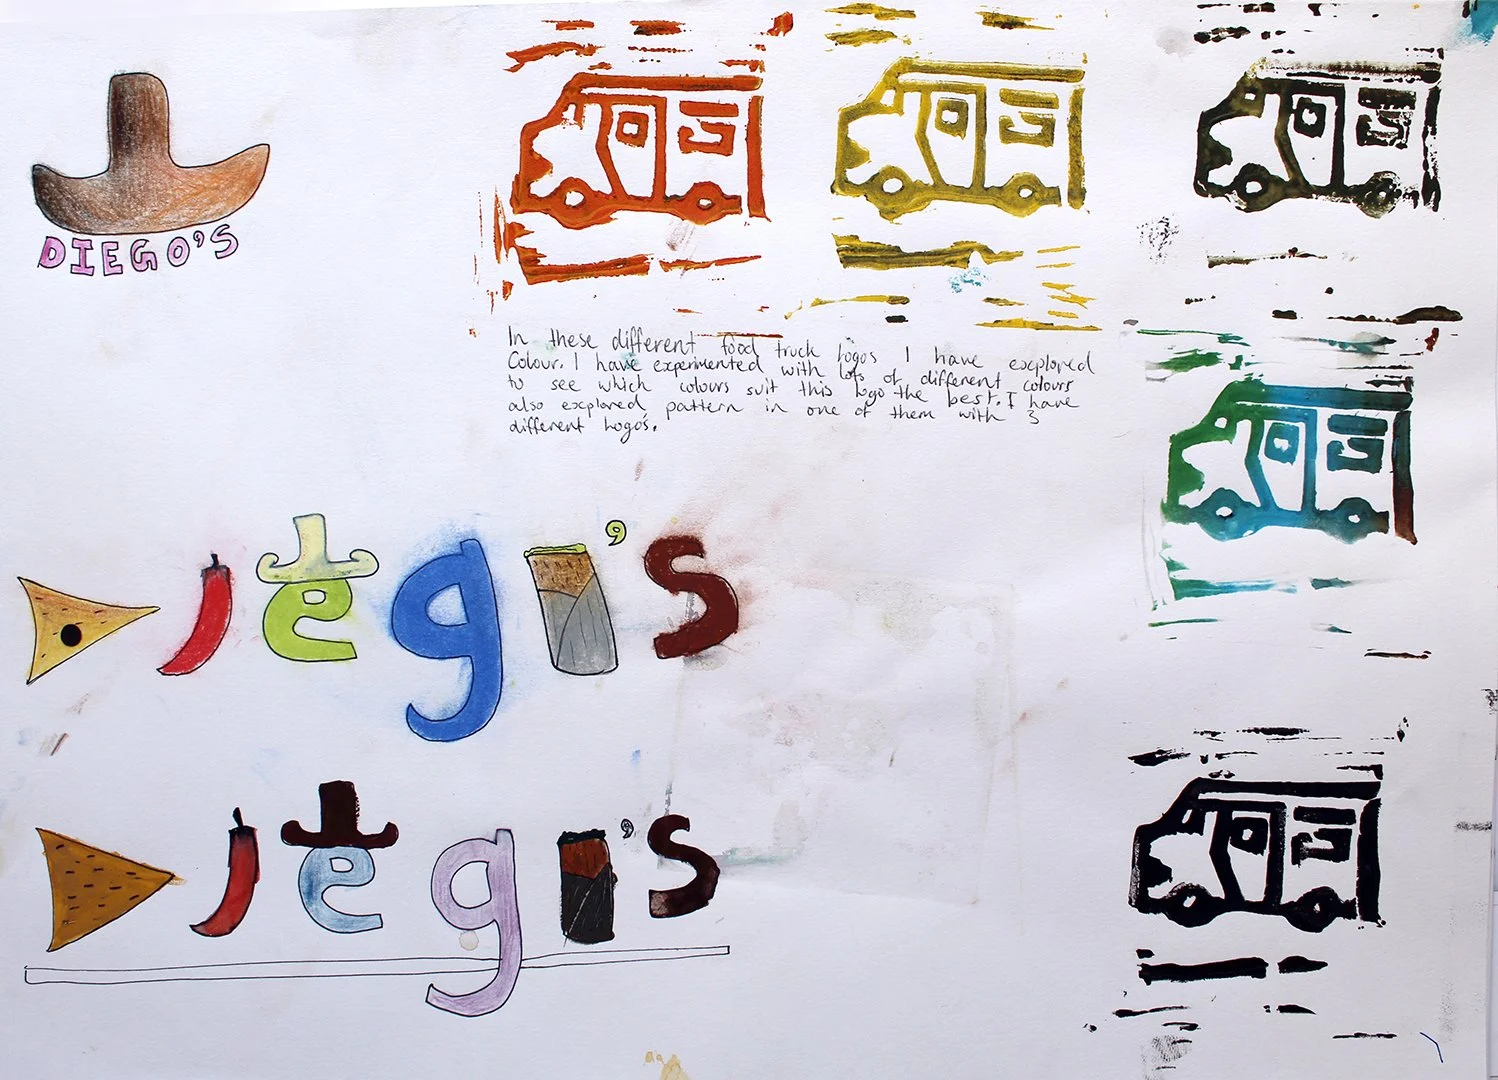 DIEGO'S
In these different food truck logos I have explored
Colour. I have experimented with lots of different colours
to see which colours suit this logo the best. I have
also explored pattern in one of them with 3
different logos.
Diego's
Diego's